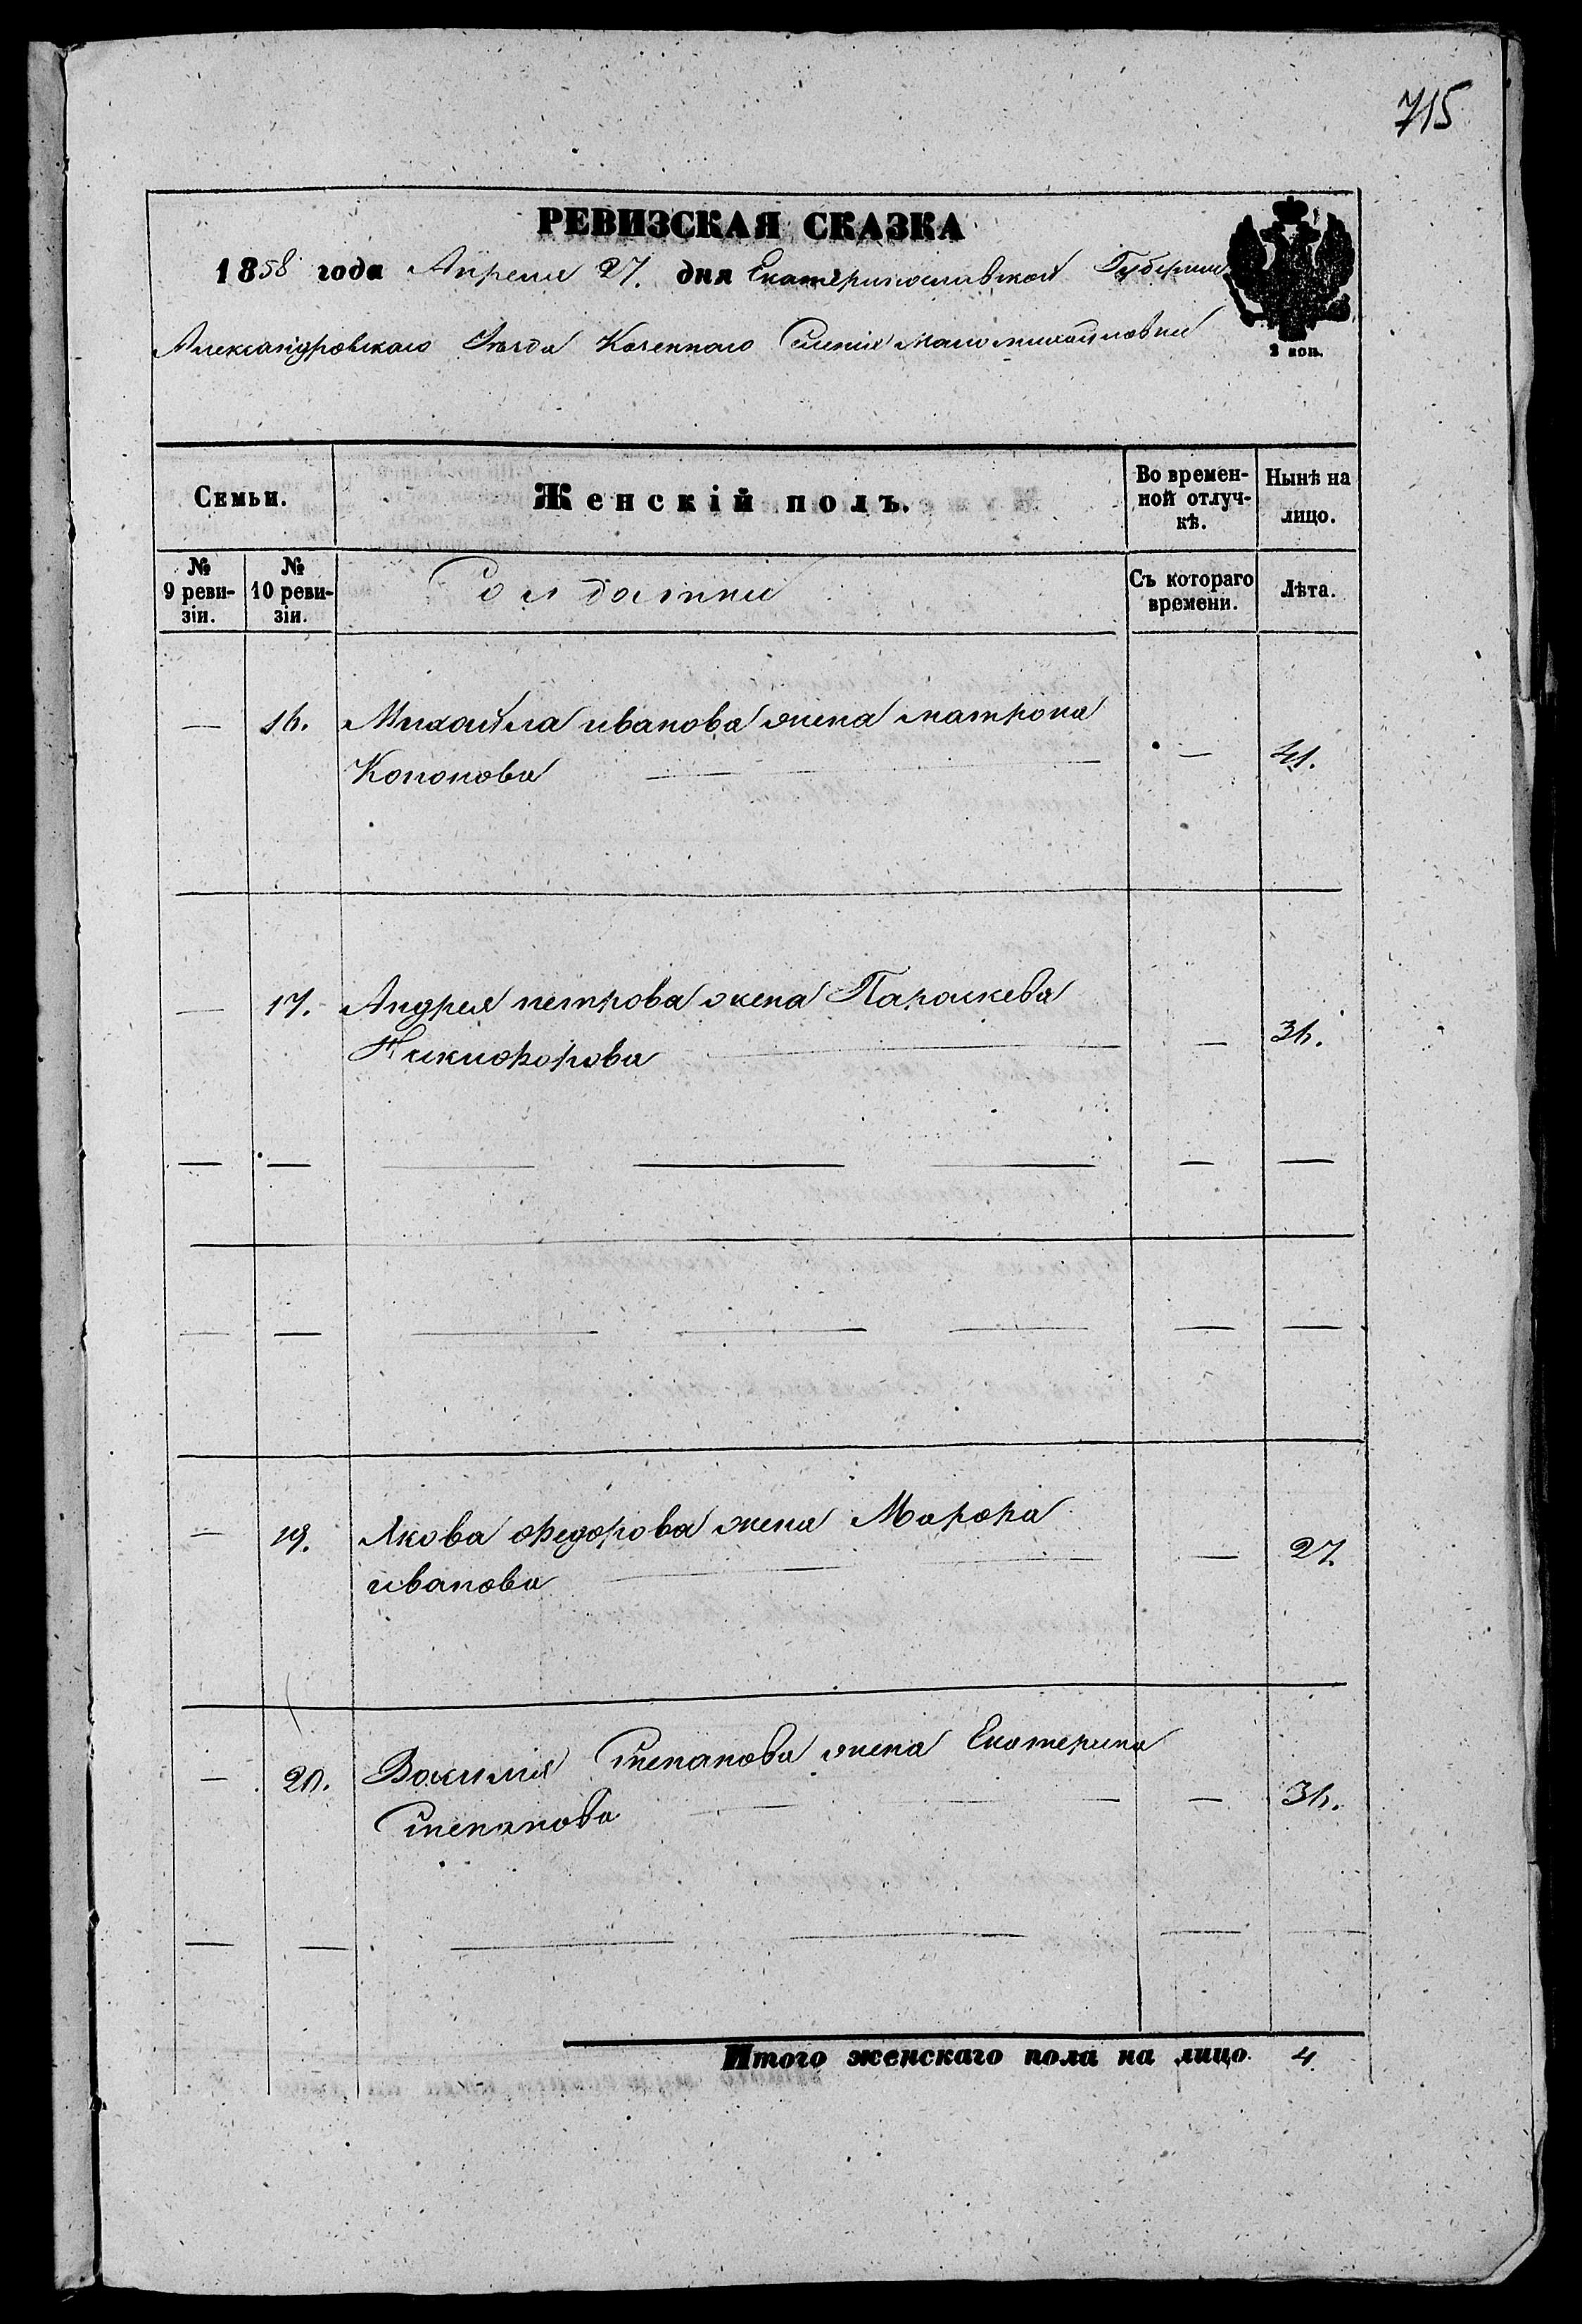 715
РЕВИЗСКАЯ СКАЗКА
1858 года Апреля 27. дня Екатеринославской Губернии
Александровского Уезда Казенного Селения Маломихайловки
2 коп.
Семьи.
Женскій полъ.
Во времен-
ной отлуч-
кѣ.
Нынѣ на
лицо.
№
9 реви-
зіи.
№
10 реви-
зіи.
Солдатки
Съ котораго
времени.
Лѣта.
— 16. Михайла иванова жена матрона
Кононова — — 41.
— 17. Андрея петрова жена Параскева
Никифорова — — 36.
— 19. Якова федорова жена Марфа
иванова — — 27.
— 20. Василия Степанова жена Екатерина
Степанова — — 36.
Итого женскаго пола на лицо. 4